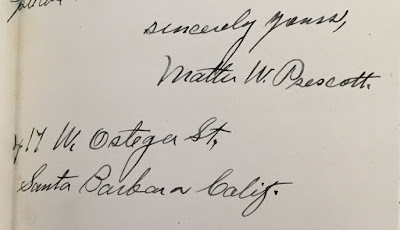 sincerely yours,
W. Prescott.
417 W. Osteger St,
Santa Barbara Calif.